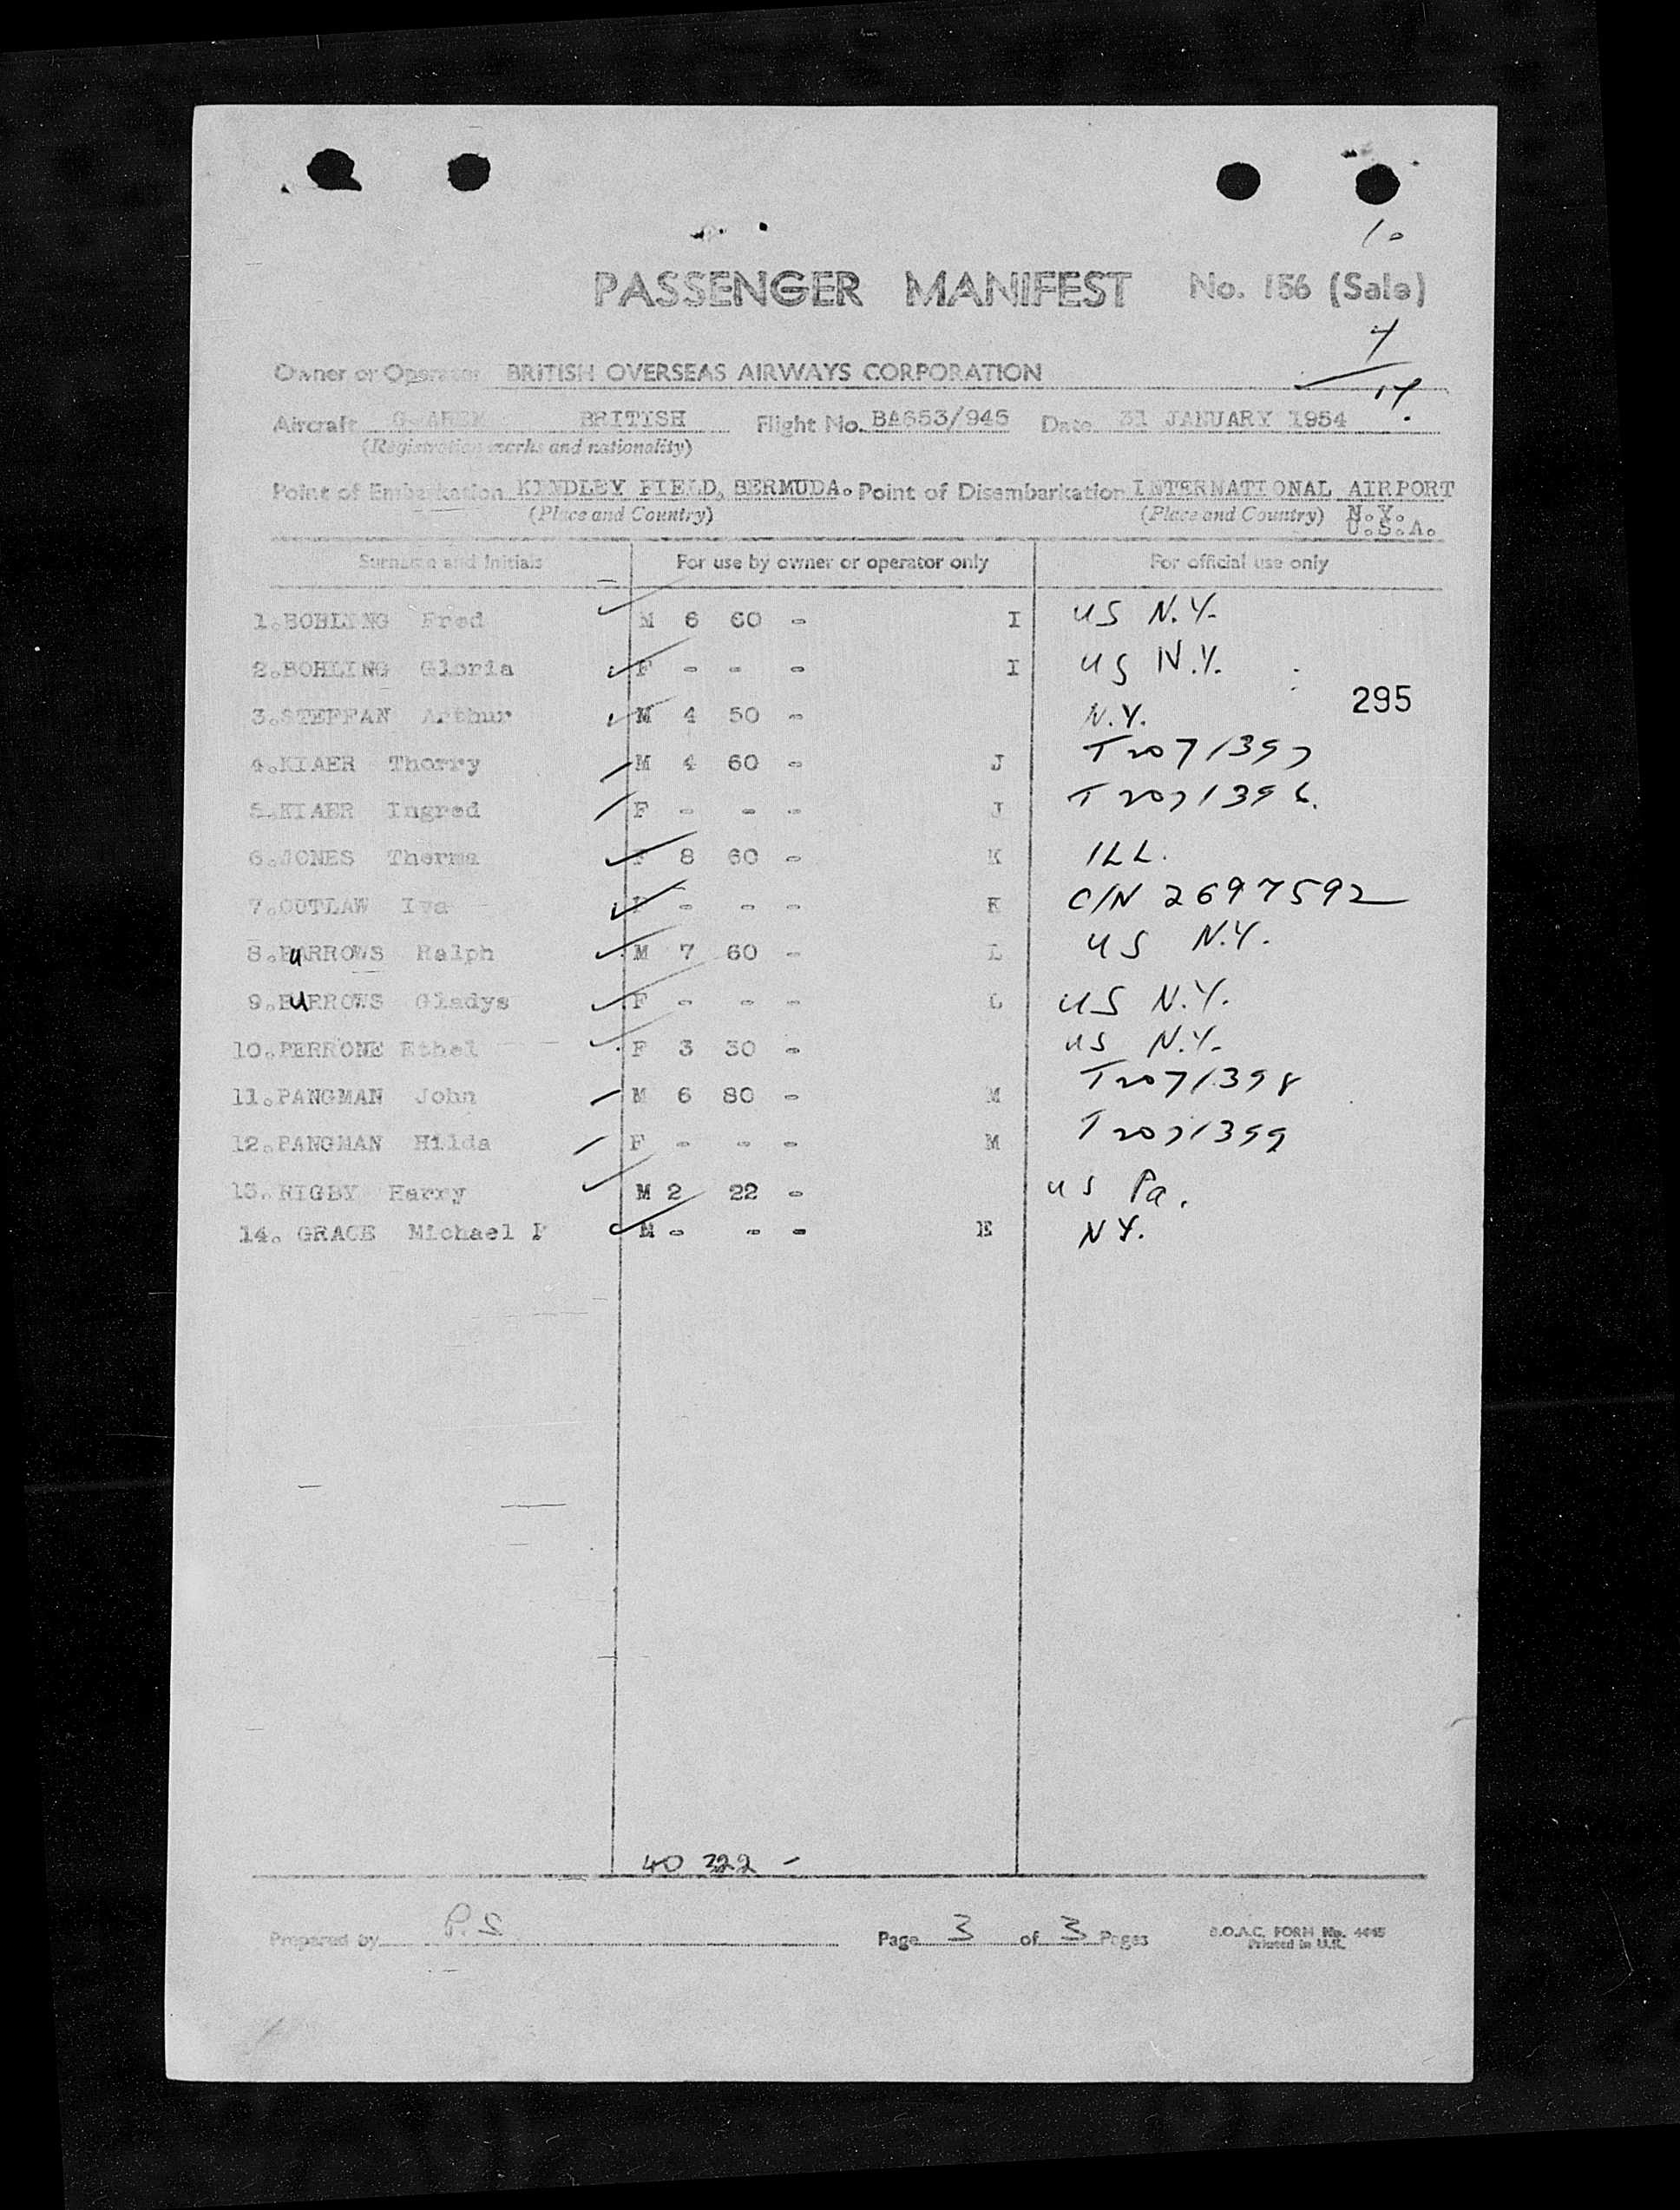 10
PASSENGER MANIFEST No. 156 (Sale)
4
14.
Owner or Operator BRITISH OVERSEAS AIRWAYS CORPORATION
Aircraft BRITISH Flight No. BA653/945 Date 31 JANUARY 1954
(Registration marks and nationality)
Point of Embarkation KINDLEY FIELD, BERMUDA. Point of Disembarkation INTERNATIONAL AIRPORT
(Place and Country) (Place and Country) N.Y.
U.S.A.
Surname and Initials For use by owner or operator only For official use only
1.BOHLING Fred M 6 60 - I US N.Y.
2.BOHLING Gloria F - - - I US N.Y.
295
3.STEFFAN Arthur M 4 50 - N.Y.
4.KIAER Thorry M 4 60 - J T2071397
5.KIAER Ingred F - - - J T2071396.
6.JONES Therma F 8 60 - K ILL.
7.OUTLAW Iva F - - - K C/N 2697592
8.BURROWS Ralph M 7 60 - L US N.Y.
9.BURROWS Gladys F - - - L US N.Y.
10.PERRONE Ethel F 3 30 - US N.Y.
11.PANGMAN John M 6 80 - M T2071398
12.PANGMAN Hilda F - - - M T2071399
13.RIGBY Harry M 2 22 - US Pa.
14. GRACE Michael P M - - - E NY.
40 322 -
Prepared by Page 3 of 3 Pages B.O.A.C. FORM No. 4445
Printed in U.K.